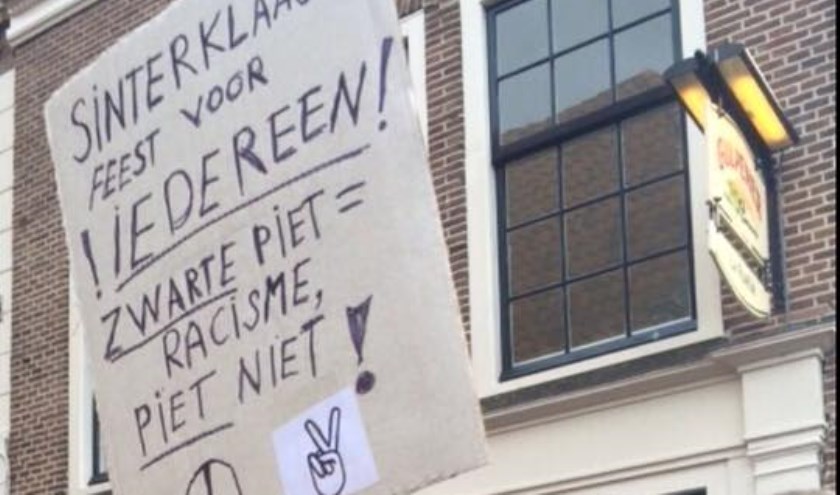 SINTERKLAAS
FEEST VOOR
!IEDEREEN!
ZWARTE PIET =
RACISME,
PIET NIET!